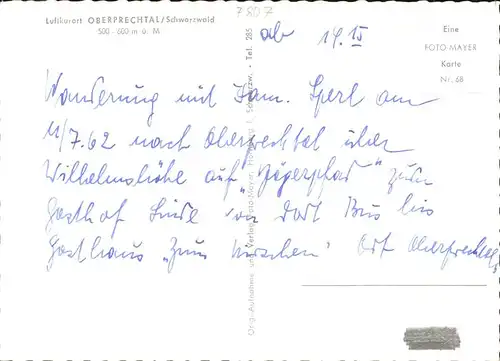 Luftkurort OBERPRECHTAL/Schwarzwald
500 - 600 m ü. M.
7807
ab 14.15
Eine
FOTO MAYER
Karte
Nr. 68
Wanderung mit Fam. Sperl am
11/7.62 nach Oberprechtal über
Wilhelmshöhe auf "Jägerpfad" zum
Gasthof Linde von dort Bus bis
Gasthaus "Zum Hirschen" Ort Oberprechtal
Orig.-Aufnahme u. Verlag Foto-Mayer, Schwarzw. - Tel. 285